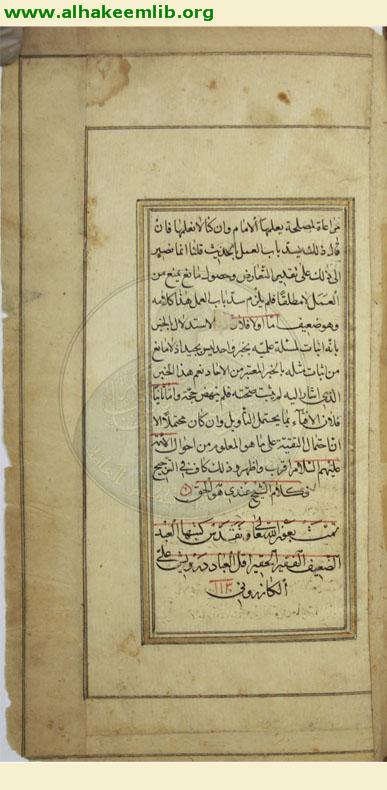 www.alhakeemlib.org
مراعاة لمصلحة يعلمها الامام وان كنا لا نعلمها فان
قال ذلك يسد باب العمل بالحديث قلنا انما نصير
الى ذلك على تقدير التعارض وحصول مانع يمنع من
العمل لا مطلقا فلم يلزم سد باب العمل هذا كلامه
وهو ضعيف اما اولا فلان الاستدلال بالخبر
بانه اثبات لمسئلة علمية بخبر واحد ليس بجيد اذ لا مانع
من اثبات مثله بالخبر المعتبر من الاحاد نعم هذا الخبر
الذى اشار اليه لم يثبت صحته فلم ينهض حجة واما ثانيا
فلان الافتاء بما يحتمل التاويل وان كان محتملا الا
ان احتمال التقية على ما هو المعلوم من احوال الائمة
عليهم السلام اقرب واظهر وذلك كاف فى الترجيح
فكلام الشيخ عندى هو الحق
تمت بعون الله تعالى كتبها العبد
الضعيف الفقير الحقير اقل العباد درويش على
الكازرونى